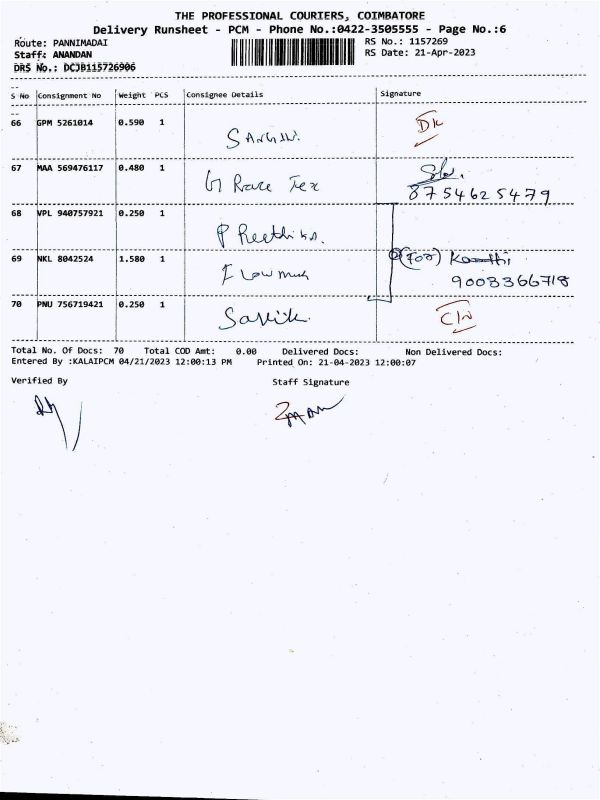 THE PROFESSIONAL COURIERS, COIMBATORE
Delivery Runsheet - PCM - Phone No.:0422-3505555 - Page No.:6
Route: PANNIMADAI
RS No.: 1157269
Staff: ANANDAN
RS Date: 21-Apr-2023
DRS No.: DCJB115726906
S No Consignment No Weight PCS Consignee Details Signature
66 GPM 5261014 0.590 1 DK
67 MAA 569476117 0.480 1 G Race Tex
8754625479
68 VPL 940757921 0.250 1
69 NKL 8042524 1.580 1 (For)
9003366718
70 PNU 756719421 0.250 1
Total No. Of Docs: 70 Total COD Amt: 0.00 Delivered Docs: Non Delivered Docs:
Entered By :KALAIPCM 04/21/2023 12:00:13 PM Printed On: 21-04-2023 12:00:07
Verified By Staff Signature